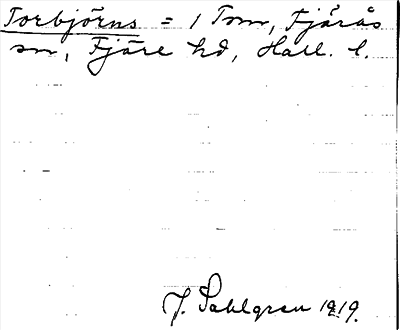 Torbjörns = 1 Tom, Fjärås
sn, Fjäre hd, Hall. l.
J. Sahlgren 1919.